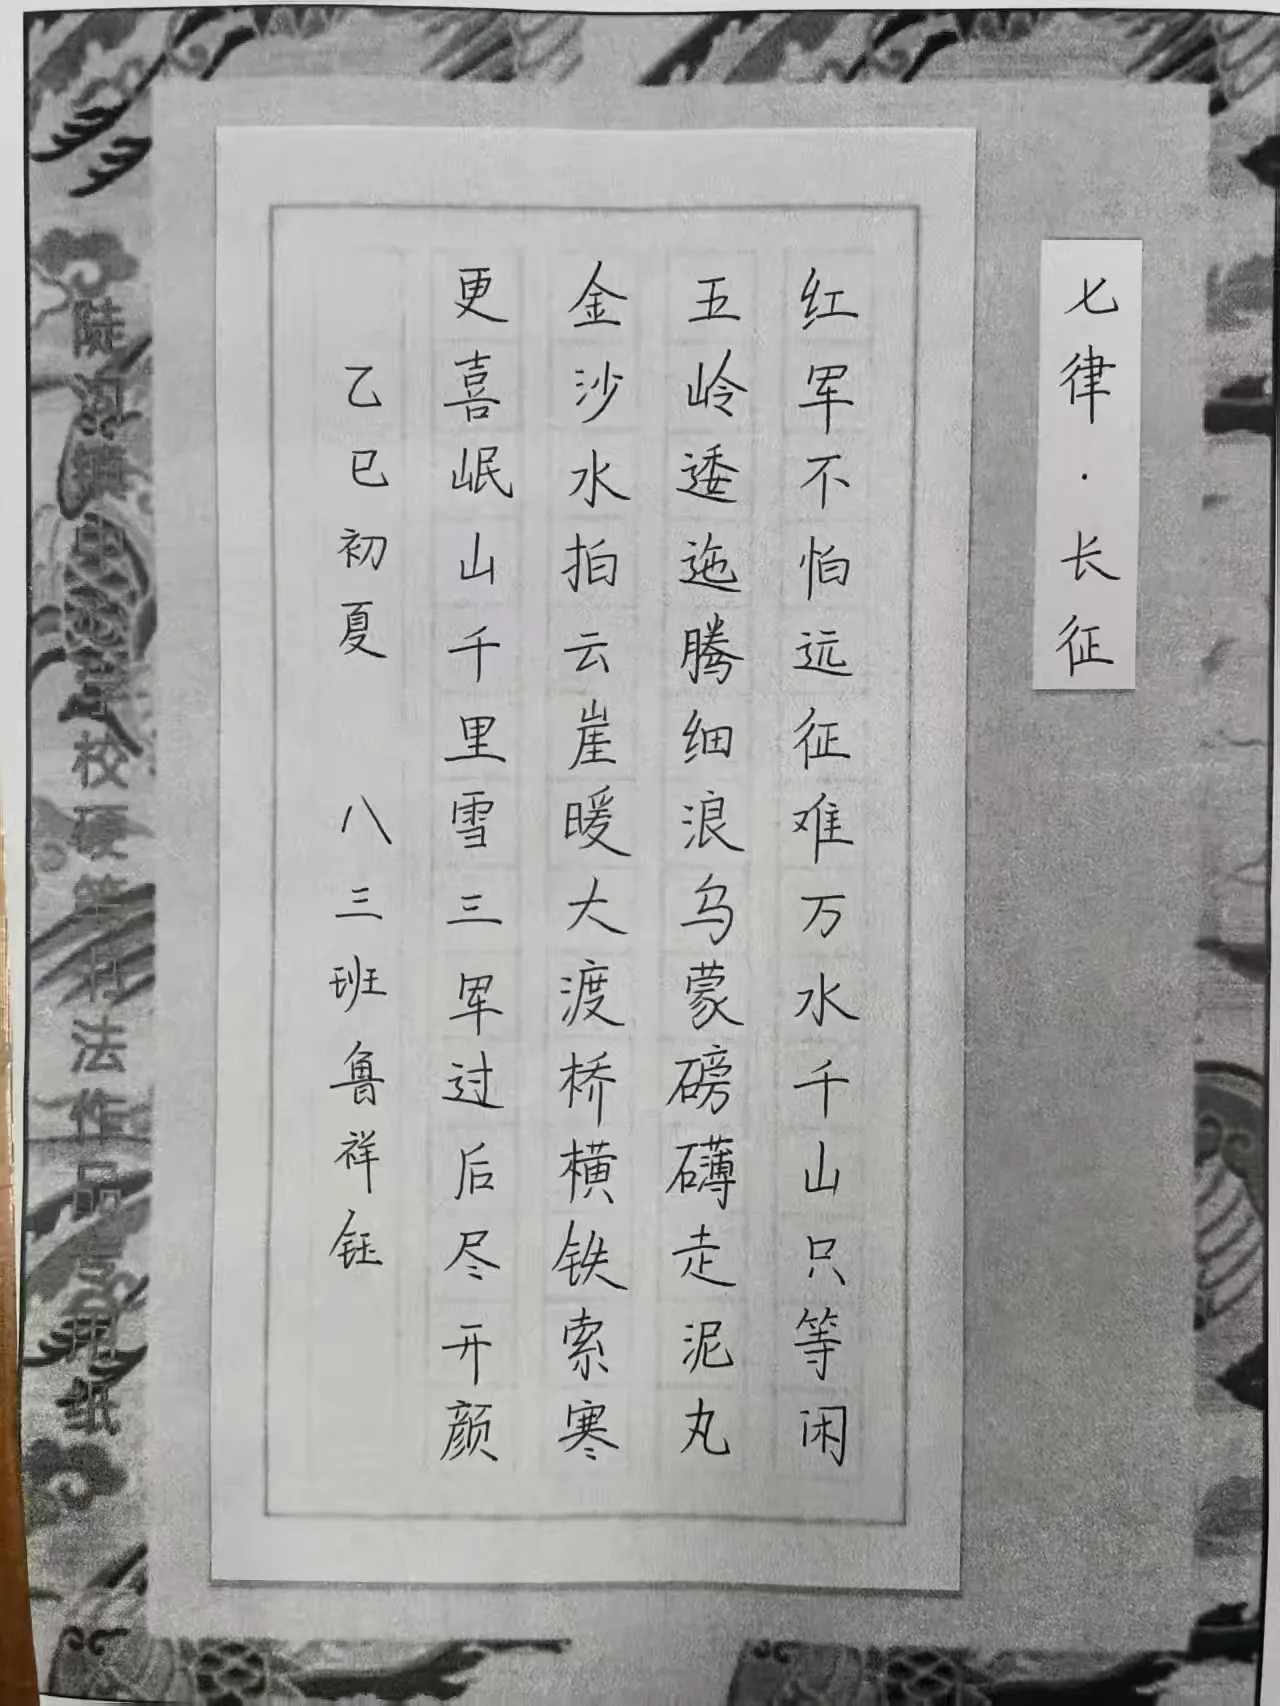 七律·长征
红军不怕远征难万水千山只等闲
五岭逶迤腾细浪乌蒙磅礴走泥丸
金沙水拍云崖暖大渡桥横铁索寒
更喜岷山千里雪三军过后尽开颜
乙巳初夏 八三班鲁祥钰
校硬笔书法作品专用纸